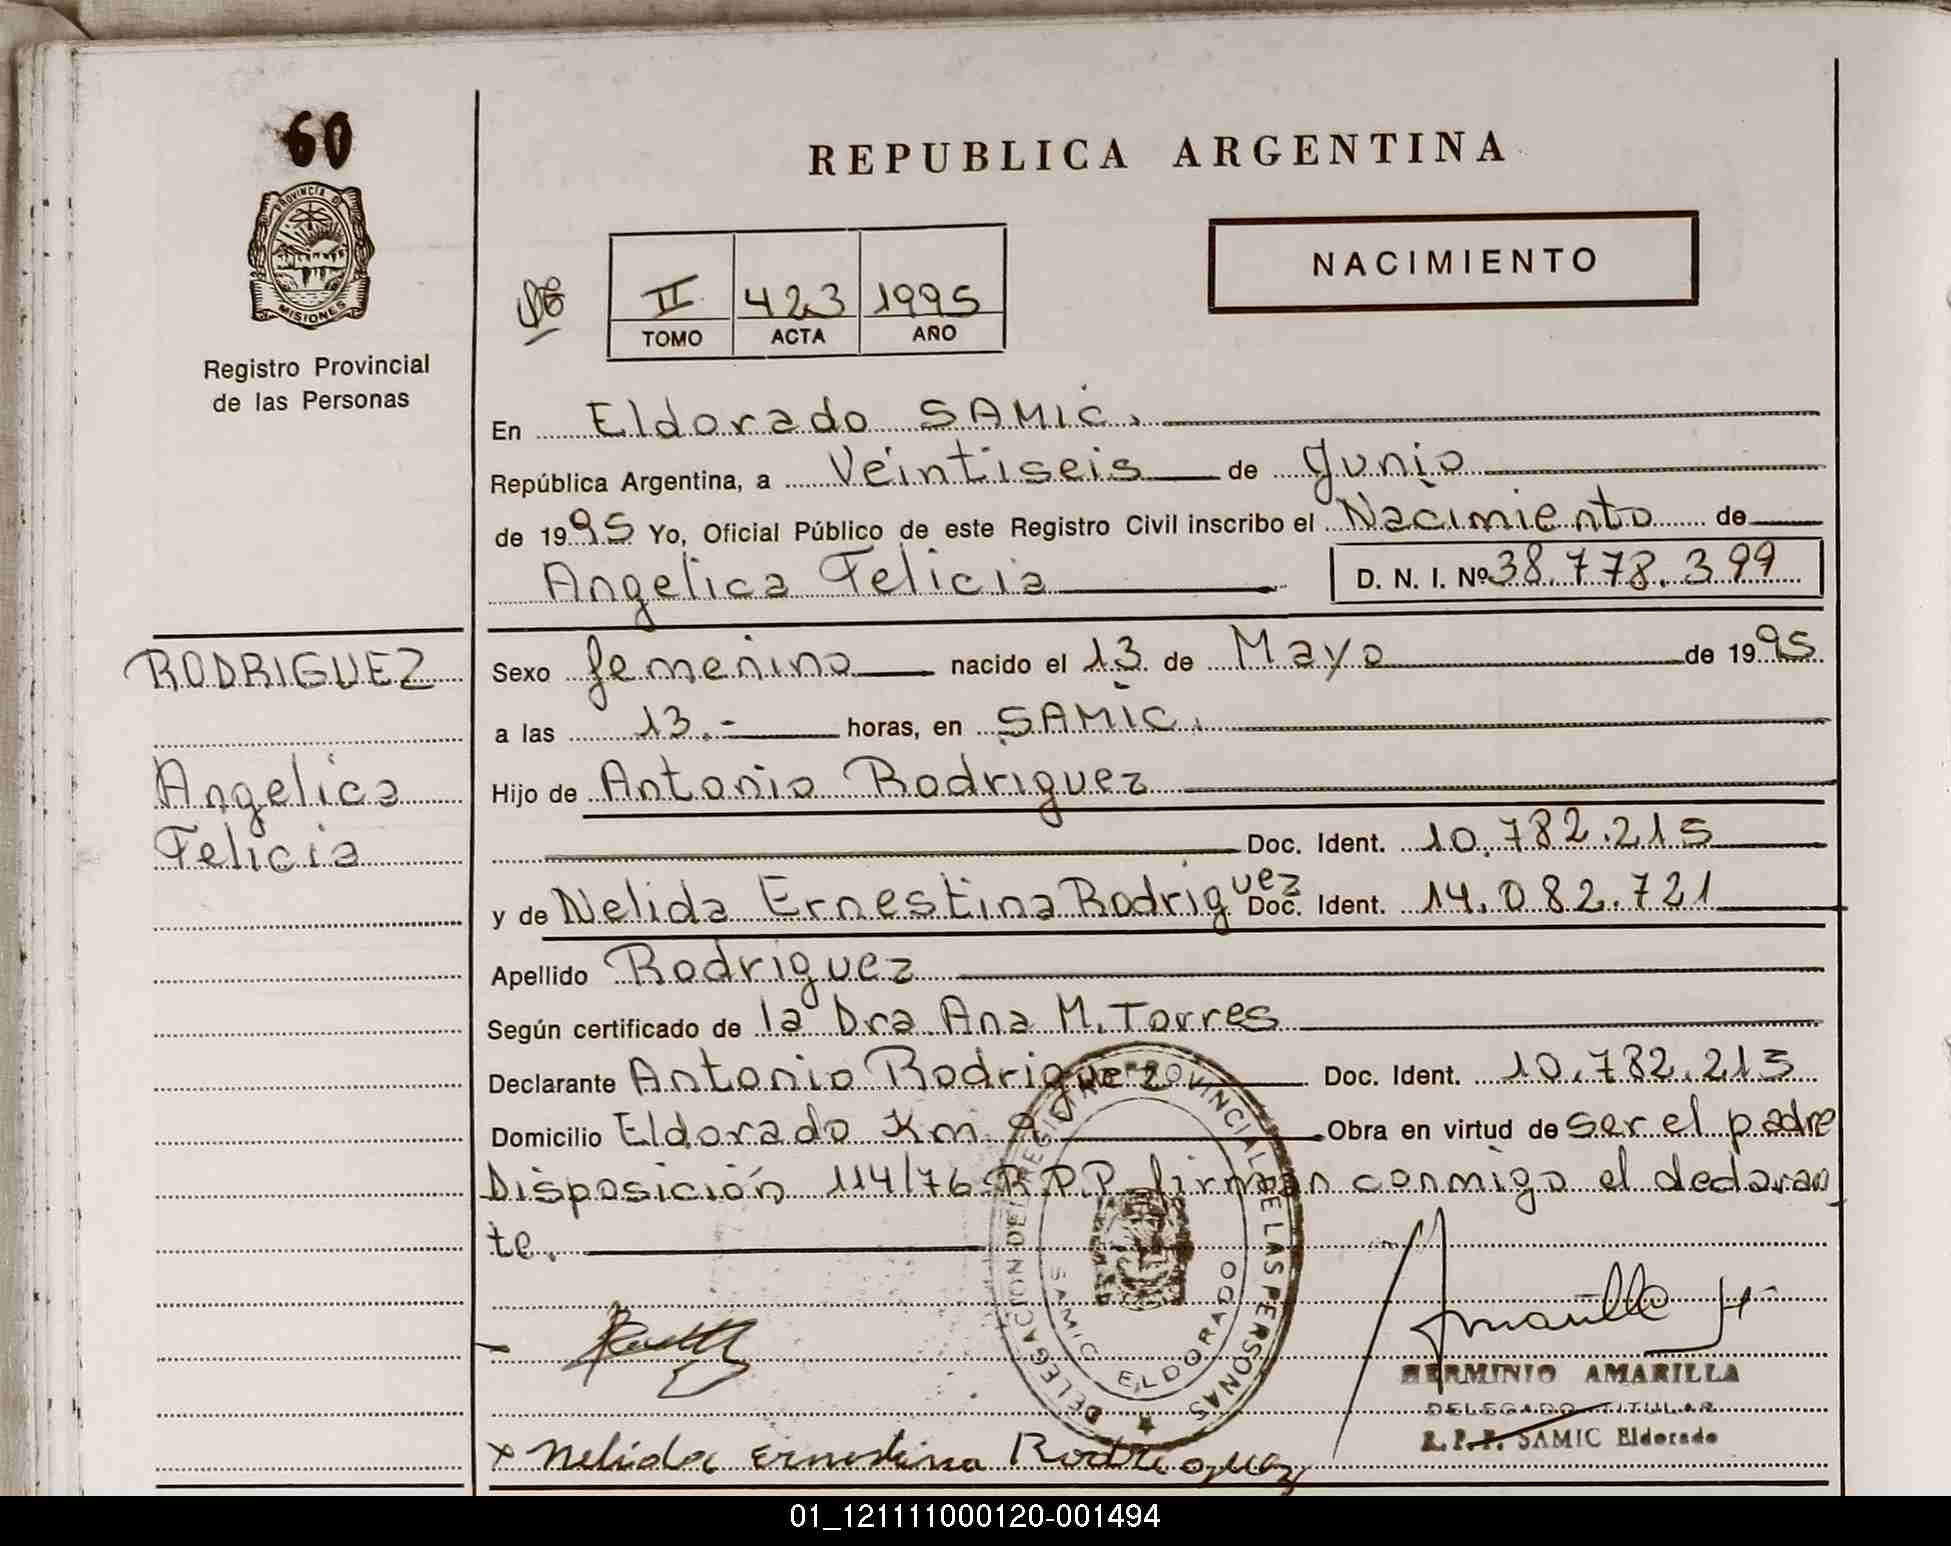 60
PROVINCIA DE
MISIONES
Registro Provincial
de las Personas
REPUBLICA ARGENTINA
NACIMIENTO
II 423 1995
TOMO ACTA AÑO
En Eldorado SAMIC.
República Argentina, a Veintiseis de Junio
de 1995 Yo, Oficial Público de este Registro Civil inscribo el Nacimiento de
Angelica Felicia D. N. I. Nº 38.778.399
RODRIGUEZ
Angelica
Felicia
Sexo femenino nacido el 13 de Mayo de 1995
a las 13.- horas, en SAMIC.
Hijo de Antonio Rodriguez
Doc. Ident. 10.782.215
y de Nelida Ernestina Rodriguez Doc. Ident. 14.082.721
Apellido Rodriguez
Según certificado de la Dra Ana M. Torres
Declarante Antonio Rodriguez Doc. Ident. 10.782.215
Domicilio Eldorado Km 9 Obra en virtud de ser el padre
Disposición 114/76 R.P.P. firman conmigo el declaran
te.
DELEGACION DEL REGISTRO PROVINCIAL DE LAS PERSONAS
SAMIC ELDORADO
Amarilla H
HERMINIO AMARILLA
DELEGADO TITULAR
R.P.P. SAMIC Eldorado
x Nelida Ernestina Rodriguez
01_121111000120-001494